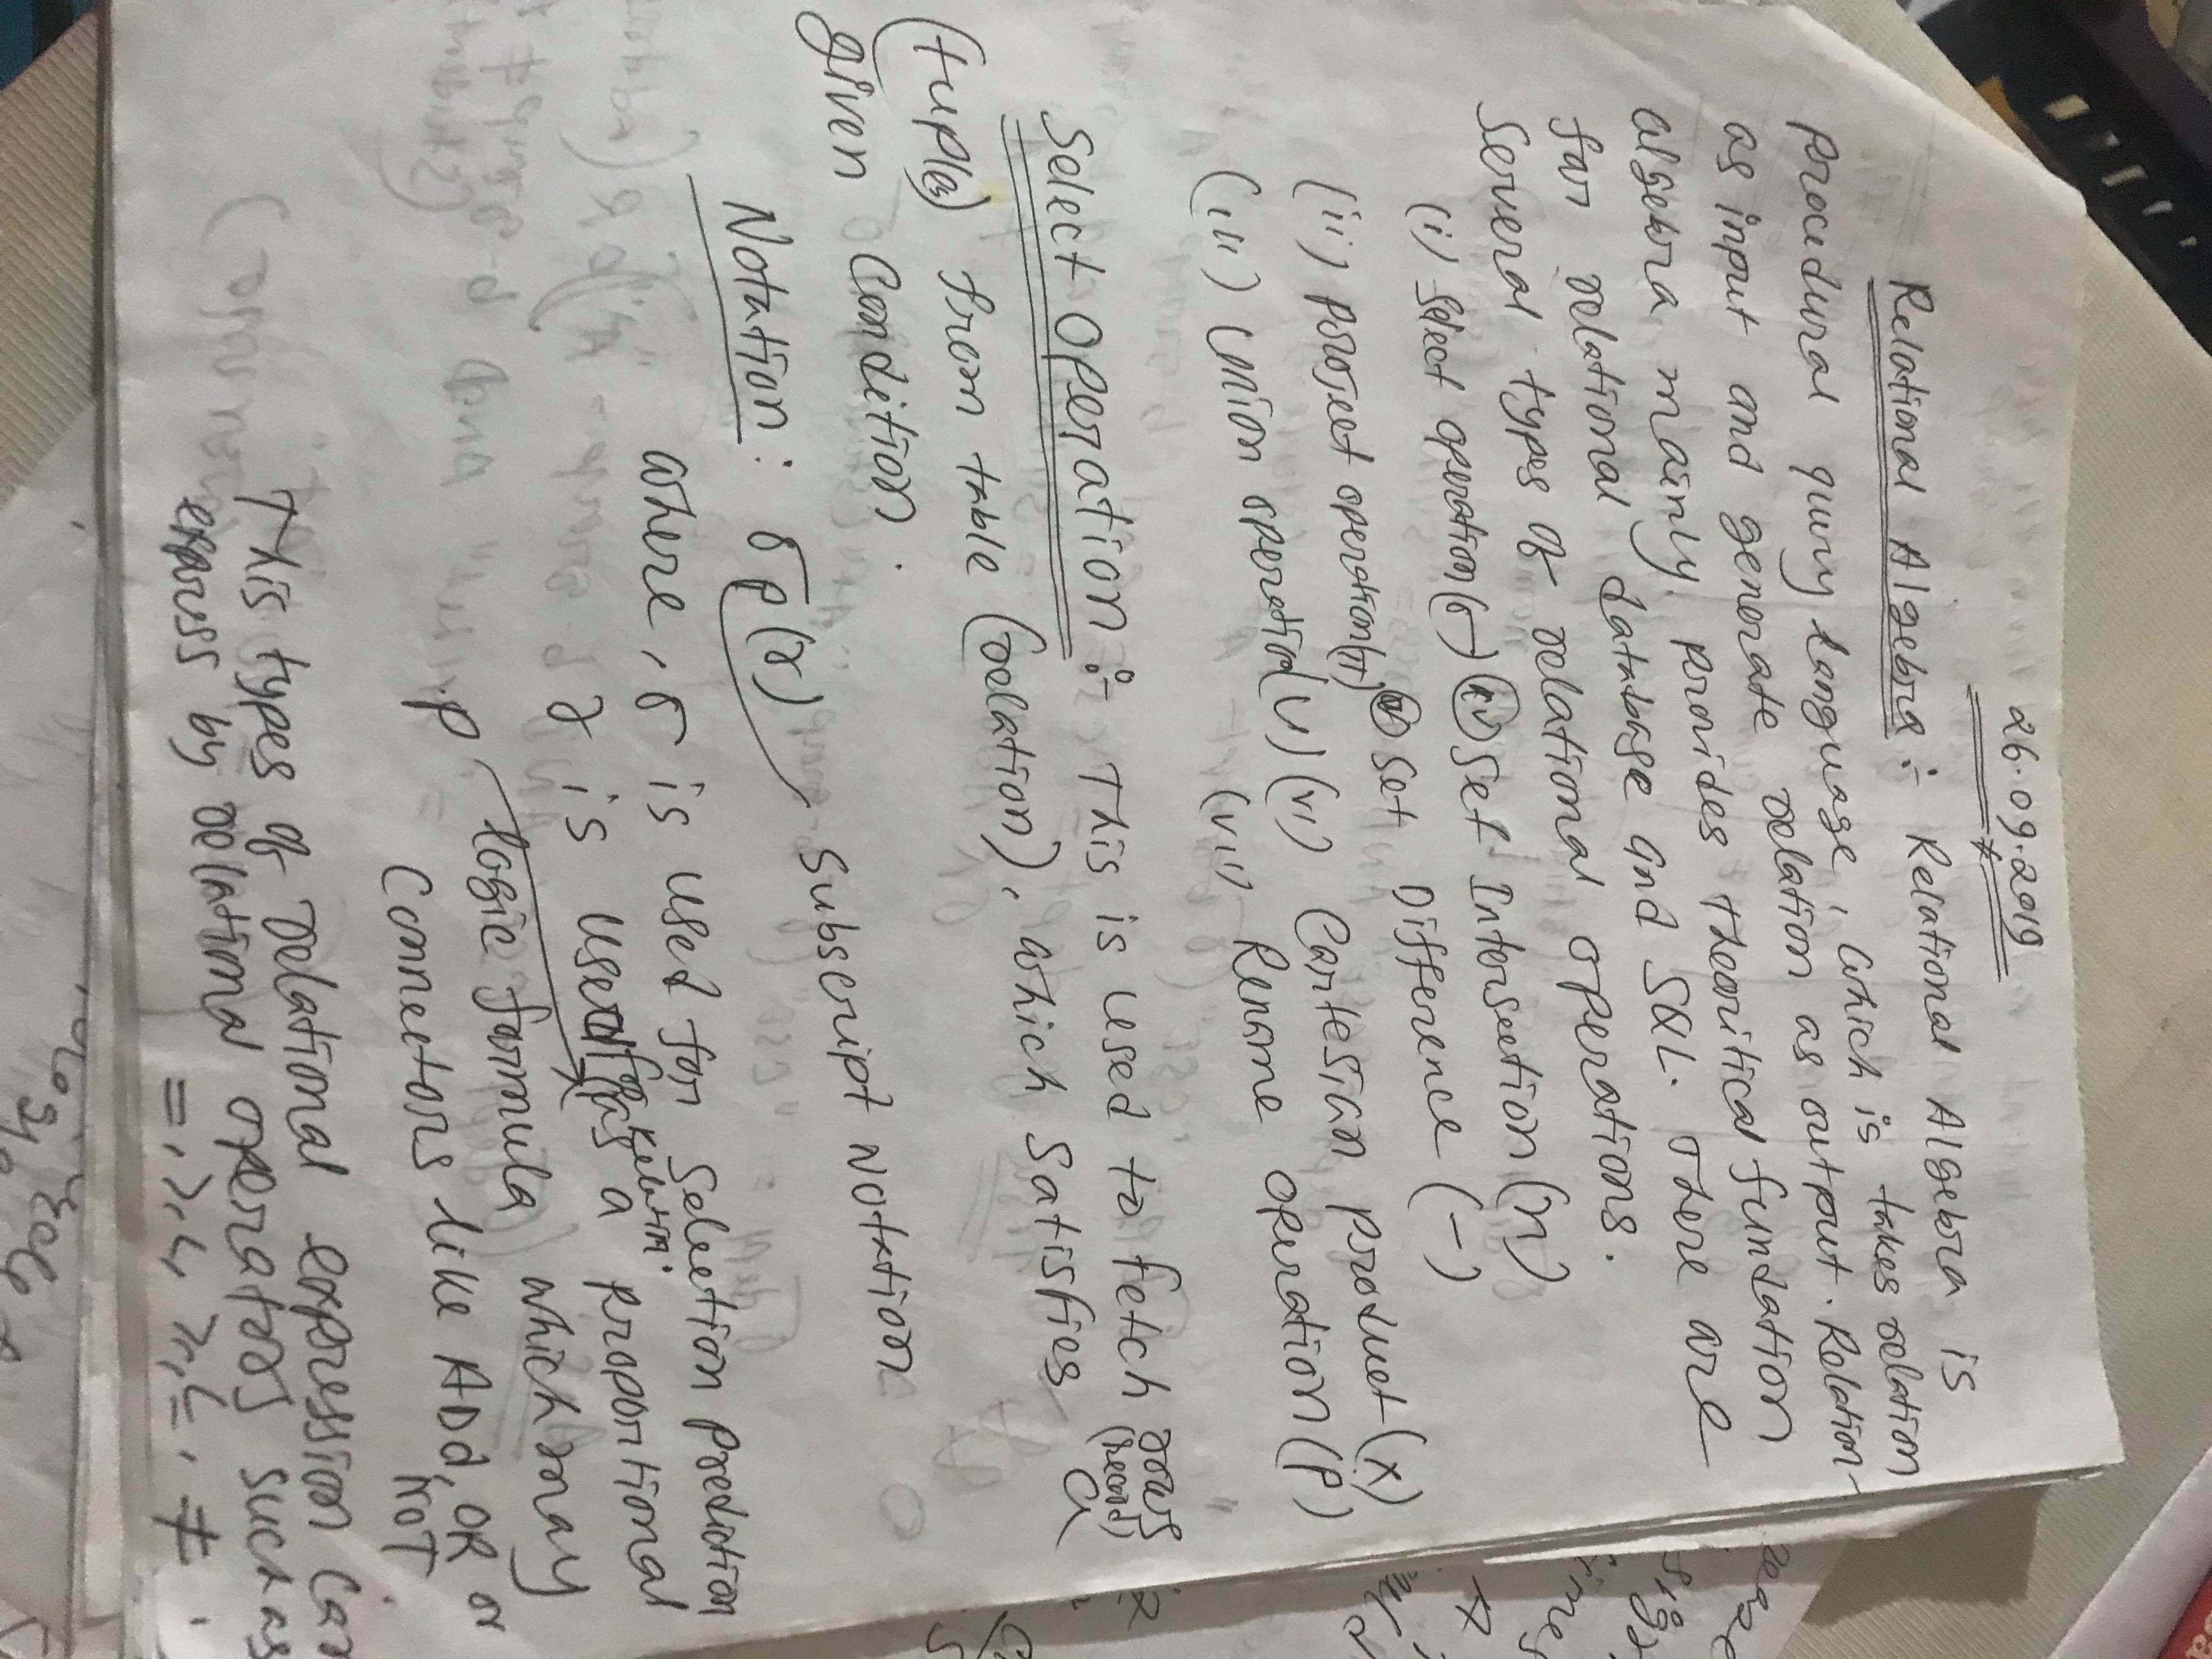 26.09.2019
Relational Algebra :- Relational Algebra is
procedural query language, which is takes relation
as input and generate relation as output. Relation-
algebra mainly. provides theoritical fundation
for relational database and SQL. There are
Several types of relational operations.
(i) Select operation (σ) (iv) Set Intersection (∩)
(ii) project operation (π) (v) Set Difference (-)
(iii) Union operation (U) (vi) Cartesian product (x)
(vii) Rename operation (ρ)
Select Operation :- This is used to fetch rows
(Record)
(tuples) from table (relation), which satisfies a
given Condition.
Notation: σp(r) Subscript Notation
where, σ is used for selection prediction
r is used for Relation.
p as a proportional
logic formula which may
Connectors like ADd, OR or
NOT.
This types of relational expression Can
express by relational operators such as
=, >, <, ≥, ≤, ≠.